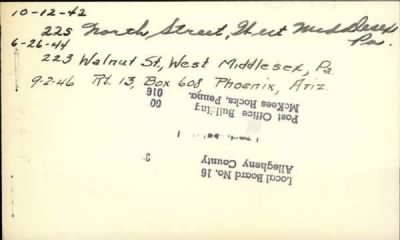 10-12-42
225 North Street, West Middlesex
Pa.
6-26-44
223 Walnut St., West Middlesex, Pa
9-2-46 Rt. 13, Box 608 Phoenix, Ariz
Local Board No. 16
Allegheny County
3
00
016
Post Office Building
McKees Rocks, Penna.